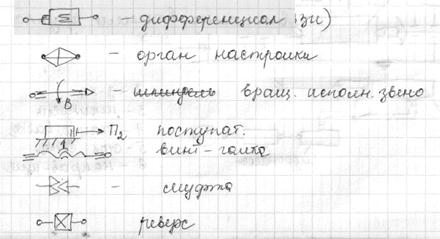 Σ - дифференциал зи)
- орган настройки
В - шпиндель вращ. исполн. звено
П₂ поступат.
1 винт - гайка
- муфта
реверс